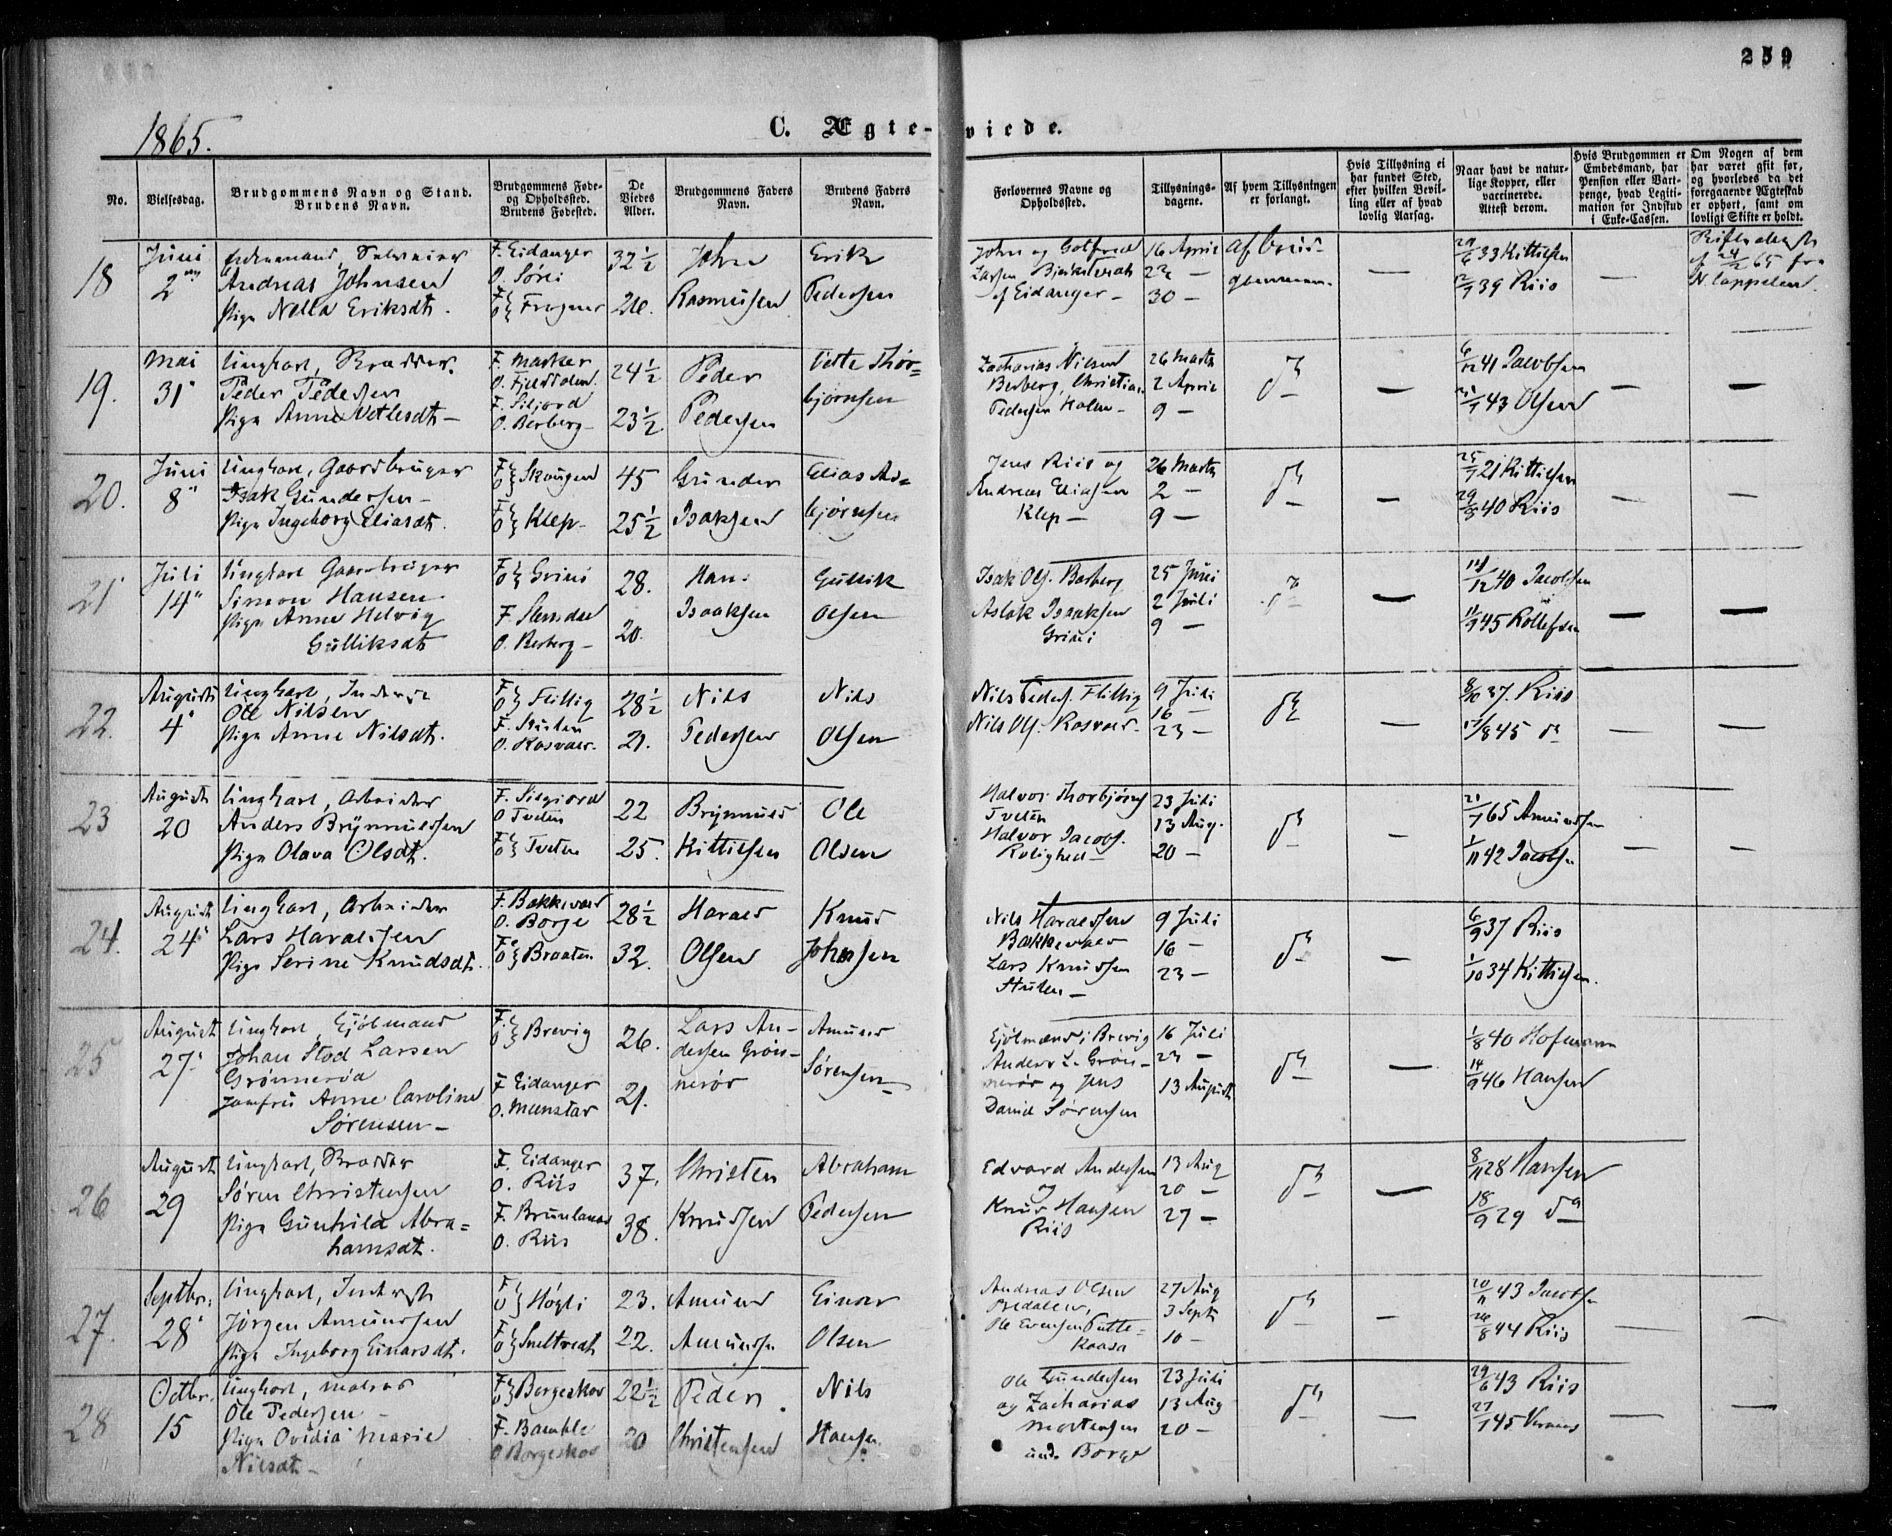 259
1865.
C. Ægte-viede.
No.
Vielsesdag.
Brudgommens Navn og Stand.
Brudens Navn.
Brudgommens Føde-
og Opholdssted.
Brudens Fødested.
De
Viedes
Alder.
Brudgommens Faders
Navn.
Brudens Faders
Navn.
Forlovernes Navne og
Opholdssted.
Tillysnings-
dagene.
Af hvem Tillysningen
er forlangt.
Hvis Tillysning ei
har fundet Sted,
efter hvilken Bevil-
ling eller af hvad
lovlig Aarsag.
Naar havt de natur-
lige Kopper, eller
vaccinerede.
Attest derom.
Hvis Brudgommen er
Embedsmand, har
Pension eller Vart-
penge, hvad Legiti-
mation for Indskud
i Enke-Cassen.
Om Nogen af dem
har været gift før,
og hvorledes da det
foregaaende Ægteskab
er ophørt, samt om
lovligt Skifte er holdt.
18
Juni
2
Andreas Johnsen
Pige Nella Eriksdt.
F. Eidanger
O. Sørei
F O } Frogner
32½
26.
John
Rasmussen
Erik
Pedersen
John og Gotfred
Larsen
af Eidanger –
16 April
23 –
30 –
33 Kittilsen
39 Riis
19.
Mai
31
Ungkarl,
Peder Pedersen
Pige Anne Vetlesdt –
F. Marker
O. Fjelddalen
F. Siljord
O. Berberg –
24½
23½
Peder
Pedersen
Vetle Thor=
bjørnsen
Zacharias Nilsen
Berberg, Christian
Pedersen Holm –
26 Marts
2 April
9 –
do
–
6/12 41 Jacobsen
43 Olsen
–
–
20.
Juni
8
Ungkarl, Gaardbruger
Isak Gundersen –
Pige Ingeborg Eliasdt.
F O } Skougen
F O } Klep –
45
25½
Gunder
Isaksen
Elias As=
bjørnsen
Jens Riis og
Andreas Eliasen
Klep –
26 Marts
2 –
9 –
do
–
25/7 21 Kittilsen
29/8 40 Riis
–
–
21
Juli
14
Ungkarl Gaardbruger
Simon Hansen
Pige Anne Helvig
Gulliksdt
F O } Grini
F. Slemdal
O. Berberg –
28.
20.
Hans
Isaaksen
Gullik
Olsen
Isak Ols. Berberg
Aslak Isaaksen
Grini
25 Juni
2 Juli
9 –
do
–
14/12 40 Jacobsen
11/9 45 Rollefsen
–
–
22.
August
4
Ungkarl, Inderst
Ole Nilsen
Pige Anne Nilsdt.
F O } Flittig
F. Stulen
O. Rosvald –
28½
21.
Nils
Pedersen
Nils
Olsen
Nils Peders. Flittig
Nils Ols. Rosvald –
9 Juli
16 –
23 –
do
–
8/10 37. Riis
45 do
–
–
23
August
20
Ungkarl, Arbeider
Anders Brynnulfsen
Pige Olava Olsdt.
F. Siljord
O Tveten
F O } Tveten
22
25.
Brynnulf
Kittilsen
Ole
Olsen
Halvor Thorbjørns
Tveten
Halvor Jacobs.
Rolighed –
23 Juli
13 Aug.
20 –
do
–
21/7 65 Amundsen
1/11 42 Jacobsen
–
–
24.
August
24
Ungkarl, Arbeider
Lars Haraldsen
Pige Serine Knudsdt.
F. Bakkevold
O. Borge
F O } Braaten
28½
32.
Harald
Olsen
Knud
Johnsen
Nils Haraldsen
Bakkevold
Lars Knudsen
Stulen –
9 Juli
16 –
23 –
do
–
6/9 37 Riis
1/10 34 Kittilsen.
25
August
27
Ungkarl, Kjøbmand
Johan Stod Larsen
Grønnerød
Jomfru Anne Caroline
Sørensen –
F O } Brevig
F Eidanger
O.
26.
21.
Lars An-
dersen Grøn-
nerød
Amund
Sørensen –
Kjøbmænd i Brevig
Anders L. Grøn-
nerød og Jens
David Sørensen
16 Juli
23 –
13 August
do
1/8 40 Hofmann
14/9 46 Hansen
26
August
29
Ungkarl,
Søren Christensen
Pige Gunhild Abra=
hamsdt.
F. Eidanger
O. Riis
F. Brunlanes
O. Riis
37.
38.
Christen
Knudsen
Abraham
Pedersen
Edvard Andersen
og
Knud Hansen
Riis
13 Aug
20 –
27 –
do
–
8/11 28 Hansen
18/9 29 do
27.
Septbr.
28
Ungkarl, Inderst
Jørgen Amundsen
Pige Ingeborg Einarsdt.
F O } Høgli
F O } Sneltvedt
23.
22.
Amund
Amundsen
Einar
Olsen
Andreas Olsen
Bredalen,
Ole Evensen Putte-
kaasa
27 Aug
3 Sept
10 –
do
–
20/11 43 Jacobsen
26/8 44 Riis
–
–
28
Octbr.
15
Ungkarl, Matros
Ole Pedersen –
Pige Ovidia Marie
Nilsdt –
F O } Borgeskov
F. Bamble
O Borgeskov
22½
20
Peder
Christensen
Nils
Hansen
Ole Gundersen
og Zacharias
Mortensen
und. Borge
23 Juli
13 Aug
20 –
do
–
29/6 43 Riis
45
–
–